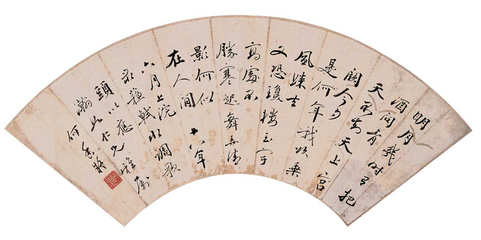 明月幾時有把
酒問青
天不知天上宮
闕今夕
是何年我欲乘
風歸去
又恐瓊樓玉宇
高處不
勝寒起舞弄清
影何似
在人間 十八年
六月上浣
蘇軾水調歌
頭以應